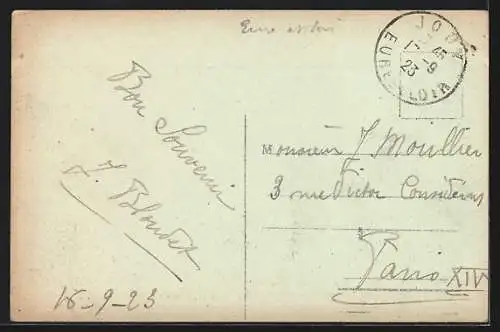 Eure et Loir
JOUY
17 45
-9
23
EURE LOIR
Bon Souvenir
J. Blondet
16-9-23
Monsieur J. Moullier
3 rue Victor Considérant
Paris XIV